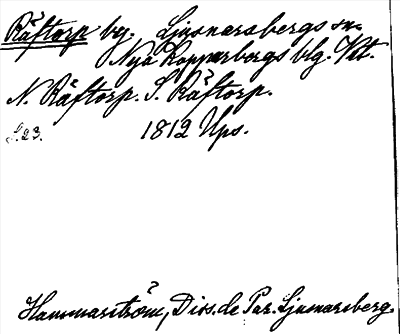 Räftorp by. Ljusnarsbergs sn.
Nya Kopparbergs blg. Vstl.
N. Räftorp. S. Räftorp.
S. 23. 1812 Ups.
Hammarström, Diss. de Par. Ljusnarsberg.